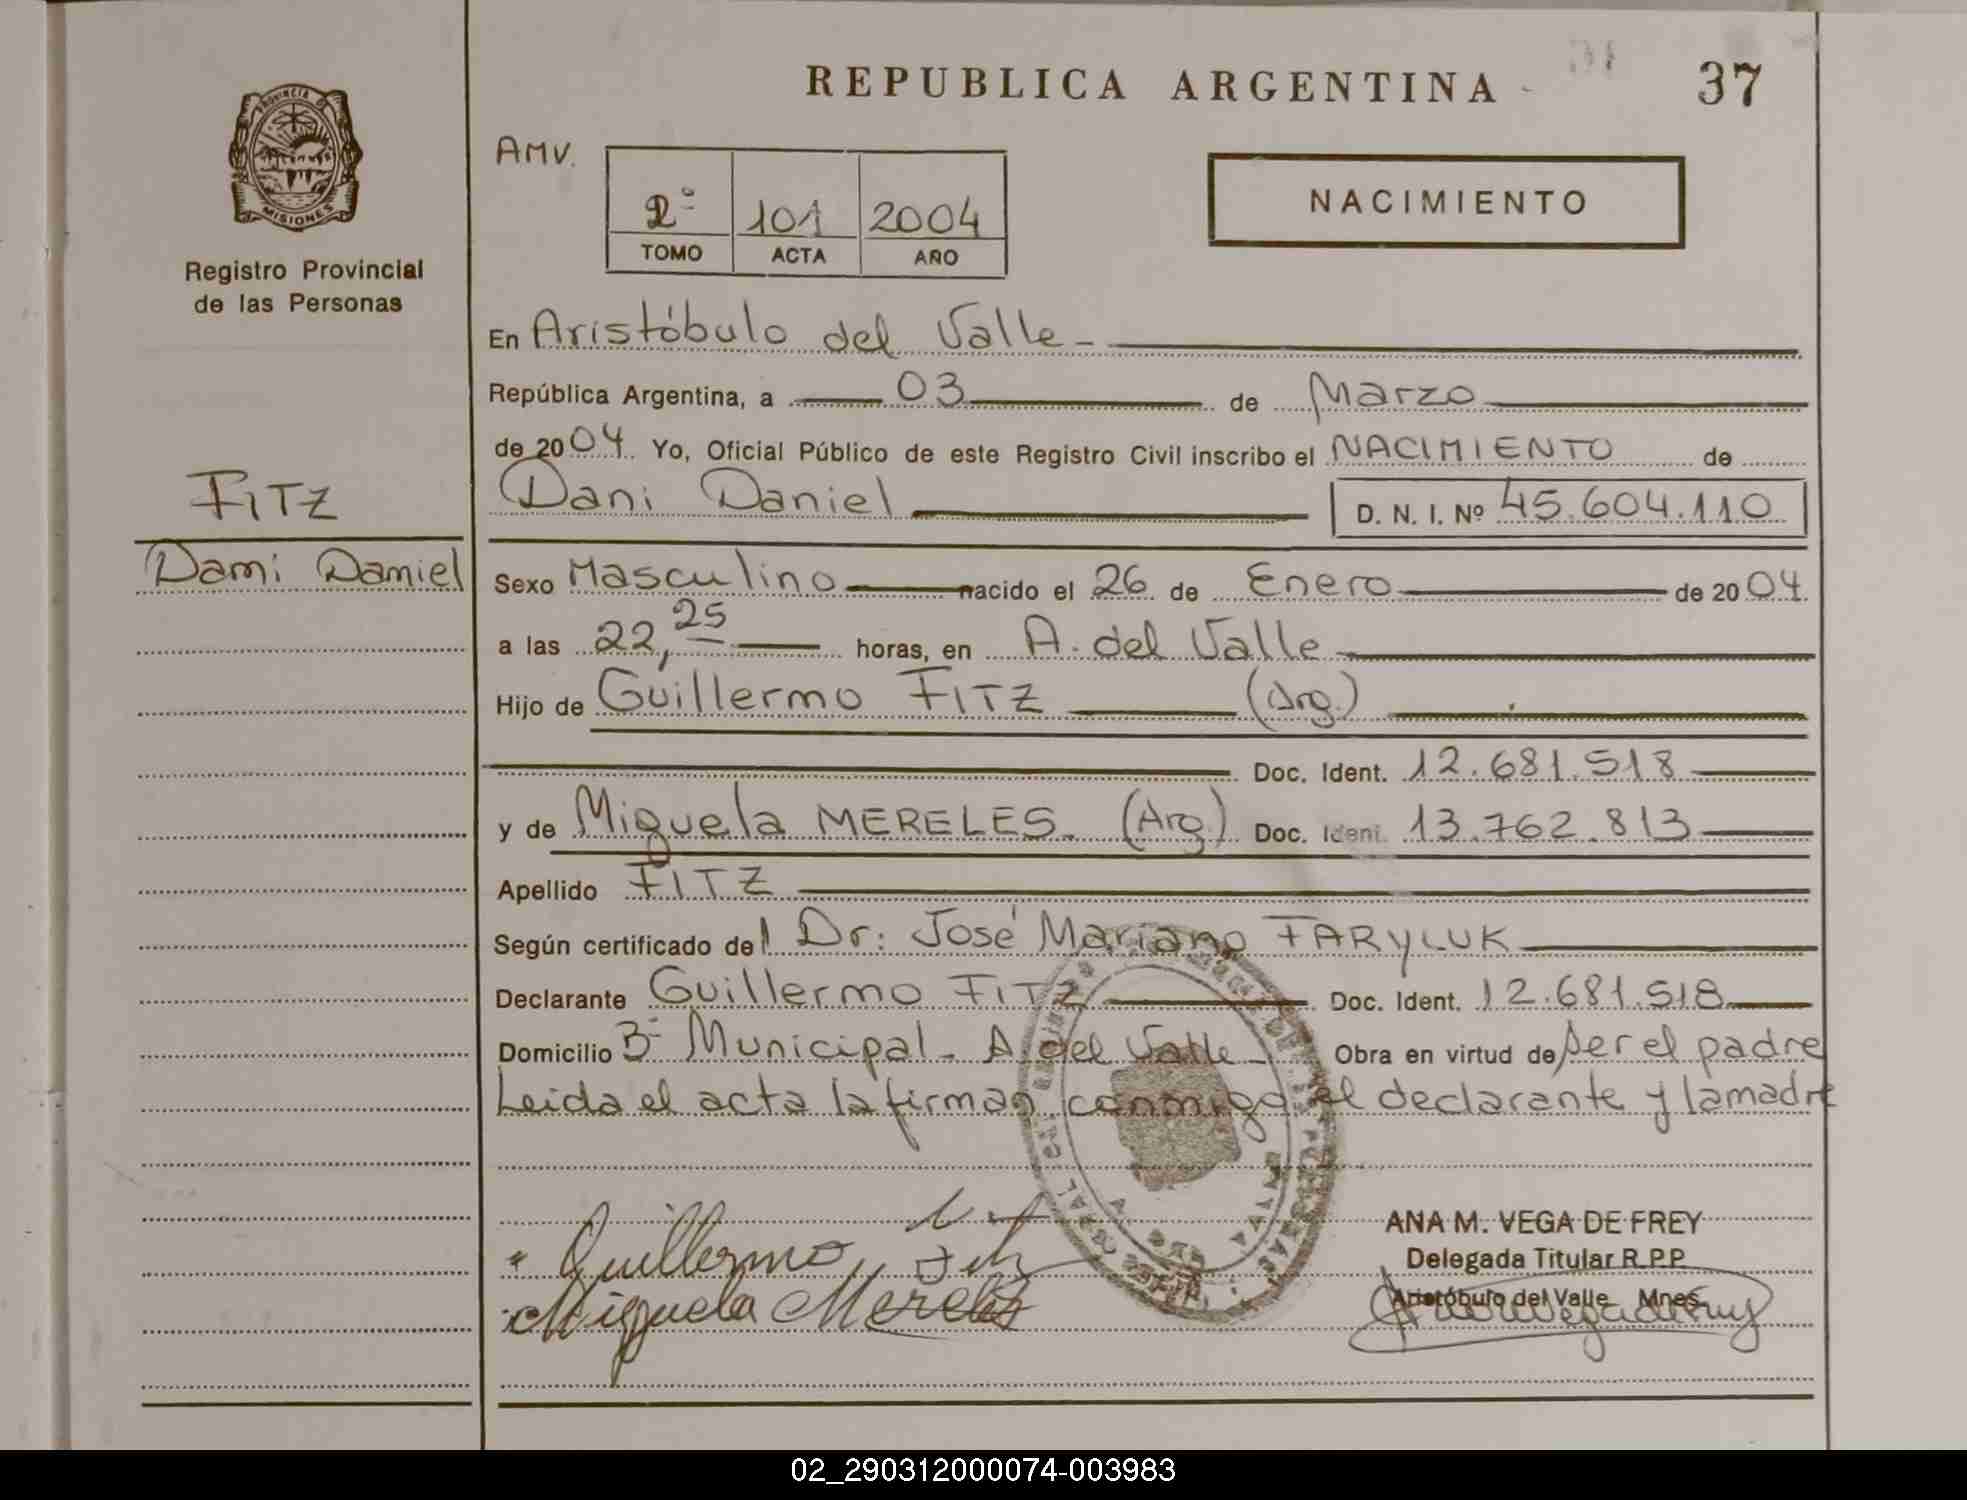 REPUBLICA ARGENTINA
37
PROVINCIA DE
MISIONES
Registro Provincial
de las Personas
AMV.
2º 101 2004
TOMO ACTA AÑO
NACIMIENTO
En Aristóbulo del Valle -
República Argentina, a 03 de Marzo
de 2004. Yo, Oficial Público de este Registro Civil inscribo el NACIMIENTO de
Dani Daniel D. N. I. Nº 45.604.110
FITZ
Dani Daniel
Sexo Masculino nacido el 26 de Enero de 2004.
a las 22,25 horas, en A. del Valle
Hijo de Guillermo FITZ (Arg.)
Doc. Ident. 12.681.518
y de Miguela MERELES. (Arg.) Doc. Ident. 13.762.813
Apellido FITZ
Según certificado del Dr: José Mariano FARYLUK
Declarante Guillermo FITZ Doc. Ident. 12.681.518
Domicilio Bº Municipal - A. del Valle Obra en virtud de ser el padre
Leida el acta la firman conmigo el declarante y la madre
Guillermo Fitz
Miguela Mereles
ANA M. VEGA DE FREY
Delegada Titular R.P.P.
Aristóbulo del Valle Mnes.
02_290312000074-003983